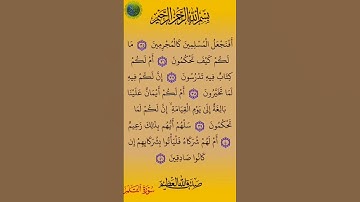 بِسْمِ اللَّهِ الرَّحْمَٰنِ الرَّحِيمِ
أَفَنَجْعَلُ الْمُسْلِمِينَ كَالْمُجْرِمِينَ ٣٥ مَا
لَكُمْ كَيْفَ تَحْكُمُونَ ٣٦ أَمْ لَكُمْ
كِتَابٌ فِيهِ تَدْرُسُونَ ٣٧ إِنَّ لَكُمْ فِيهِ
لَمَا تَخَيَّرُونَ ٣٨ أَمْ لَكُمْ أَيْمَانٌ عَلَيْنَا
بَالِغَةٌ إِلَىٰ يَوْمِ الْقِيَامَةِ ۙ إِنَّ لَكُمْ لَمَا
تَحْكُمُونَ ٣٩ سَلْهُمْ أَيُّهُم بِذَٰلِكَ زَعِيمٌ
٤٠ أَمْ لَهُمْ شُرَكَاءُ فَلْيَأْتُوا بِشُرَكَائِهِمْ إِن
كَانُوا صَادِقِينَ ٤١
صدق الله العظيم
سورة القلم